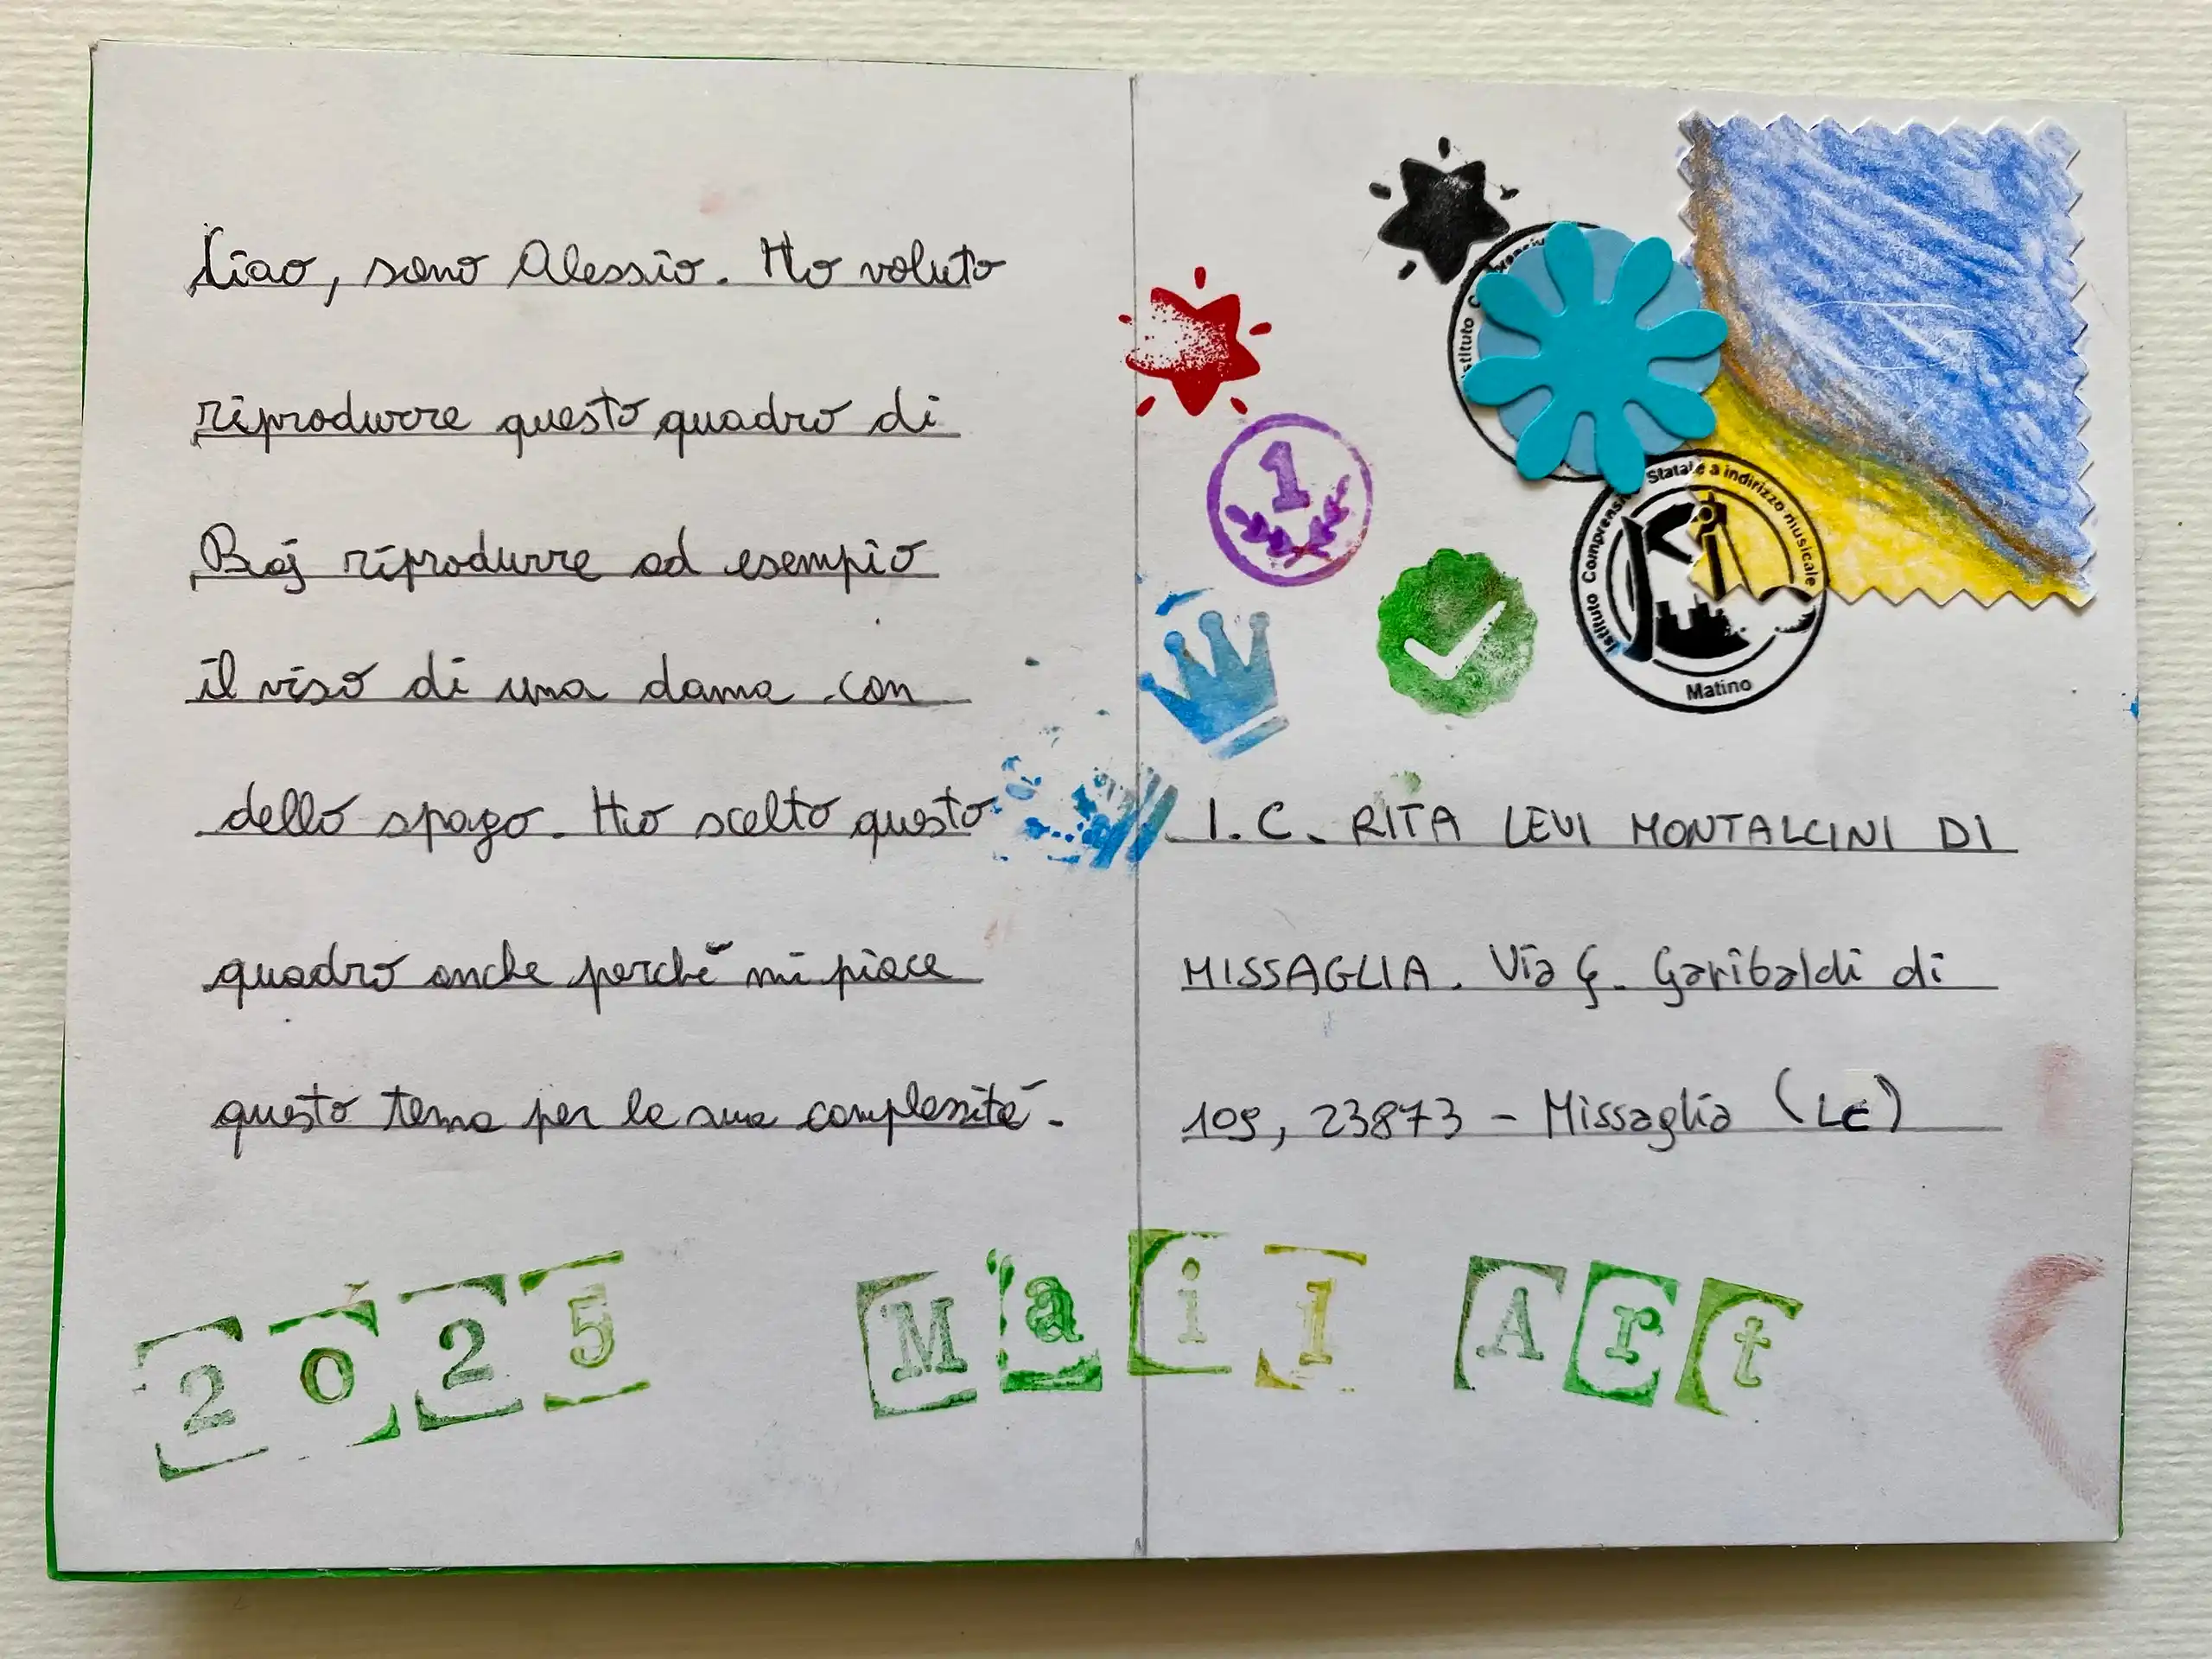 Ciao, sono Alessio. Ho voluto
riprodurre questo quadro di
Baj riprodurre ad esempio
il viso di una dama con
dello spago. Ho scelto questo
quadro anche perché mi piace
questo tema per la sua complessità.
1
Istituto Comprensivo Statale a indirizzo musicale
Matino
I.C. RITA LEVI MONTALCINI DI
MISSAGLIA. Via G. Garibaldi di
109, 23873 - Missaglia (LC)
2025 Mail Art